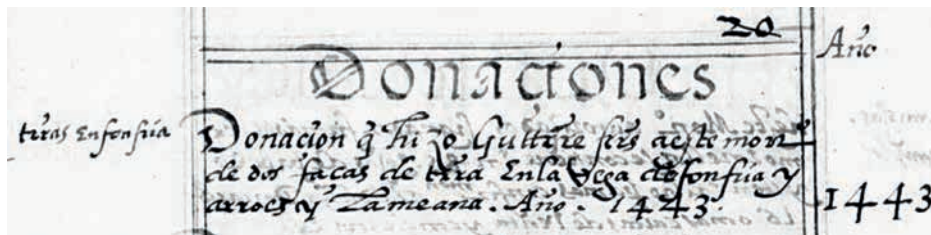 20
Año
Donaciones
tr̃ras Enfonfria
Donacion q̃ hizo Guttirre frrs aeste mon̄
de dos facas de tr̃ra Enla Vega defonfria y
arroes y Tameana. Año. 1443.
1443